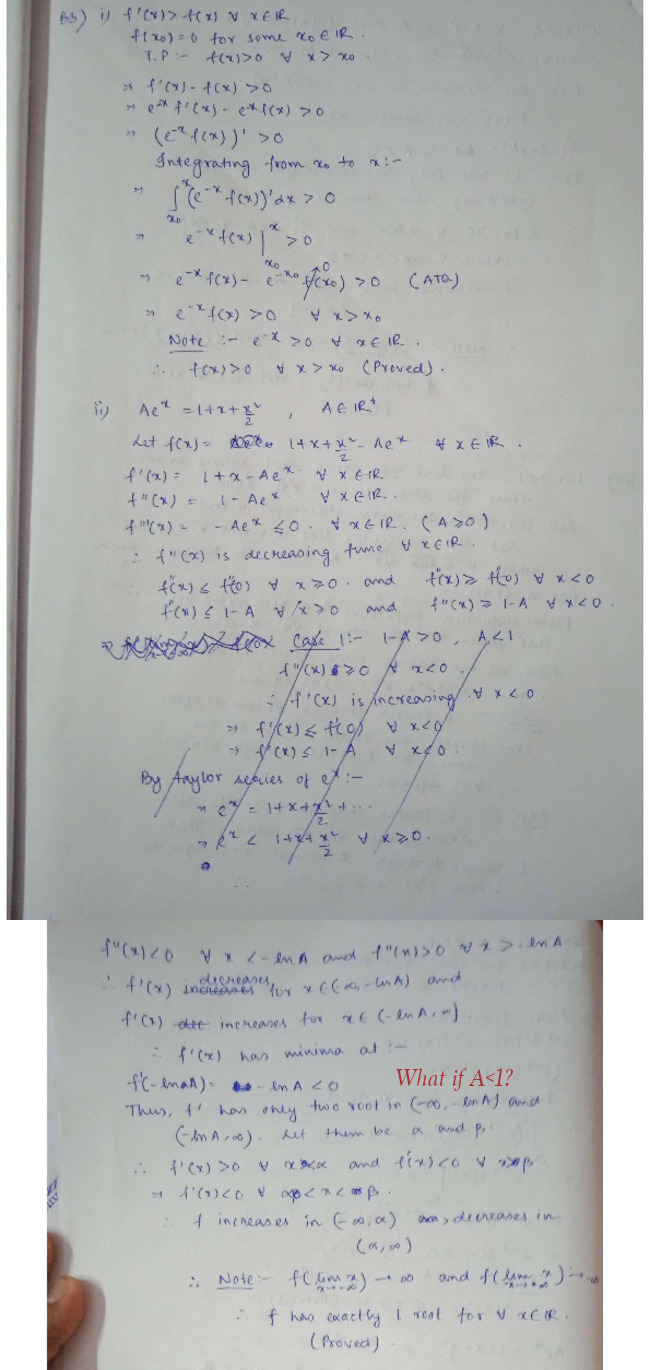 B3) i) f'(x) > f(x) ∀ x∈ℝ
f(x₀) = 0 for some x₀ ∈ ℝ.
T.P :- f(x)>0 ∀ x > x₀.
⇒ f'(x) - f(x) > 0
⇒ e⁻ˣ f'(x) - e⁻ˣ f(x) > 0
⇒ (e⁻ˣ f(x))' > 0
Integrating from x₀ to x :-
⇒ ∫ₓ₀ˣ (e⁻ˣ f(x))' dx > 0
⇒ e⁻ˣ f(x) |ₓ₀ˣ > 0
⇒ e⁻ˣ f(x) - e^(-x₀) f(x₀) > 0 (ATQ)
⇒ e⁻ˣ f(x) > 0 ∀ x > x₀
Note :- e⁻ˣ > 0 ∀ x ∈ ℝ.
∴ f(x) > 0 ∀ x > x₀ (Proved).
ii) Aeˣ = 1+x+x²/2 , A ∈ ℝ⁺
Let f(x) = 1+x+x²/2 - Aeˣ ∀ x ∈ ℝ.
f'(x) = 1+x - Aeˣ ∀ x ∈ ℝ
f''(x) = 1 - Aeˣ ∀ x ∈ ℝ..
f'''(x) = -Aeˣ ≤ 0. ∀ x ∈ ℝ. (A ≥ 0)
∴ f''(x) is decreasing func ∀ x ∈ ℝ.
∴ f''(x) ≤ f''(0) ∀ x ≥ 0. and f''(x) ≥ f''(0) ∀ x < 0
f''(x) ≤ 1-A ∀ x ≥ 0 and f''(x) ≥ 1-A ∀ x < 0.
Case 1 :- 1-A > 0 , A < 1
f''(x) ≥ 0 ∀ x < 0.
∴ f'(x) is increasing ∀ x < 0
⇒ f'(x) ≤ f'(0) ∀ x < 0
⇒ f'(x) ≤ 1-A ∀ x < 0.
By taylor series of eˣ :-
⇒ eˣ = 1+x+x²/2+...
⇒ eˣ < 1+x+x²/2 ∀ x ≥ 0.
f''(x) < 0 ∀ x < -ln A and f''(x) > 0 ∀ x > -ln A
∴ f'(x) increases decreases for x ∈ (-∞, -ln A) and
f'(x) dec increases for x ∈ (-ln A, ∞)
∴ f'(x) has minima at :-
f'(-ln A) = -ln A < 0 What if A<1?
Thus, f' has only two root in (-∞, -ln A) and
(-ln A, ∞). Let them be α and β.
∴ f'(x) > 0 ∀ x < α and f'(x) < 0 ∀ x > β
⇒ f'(x) < 0 ∀ α < x < β.
∴ f increases in (-∞, α) decreases in
(α, ∞)
∴ Note :- f(lim x→-∞ x) → ∞ and f(lim x→∞ x) → -∞
∴ f has exactly 1 root for ∀ x ∈ ℝ.
(Proved)